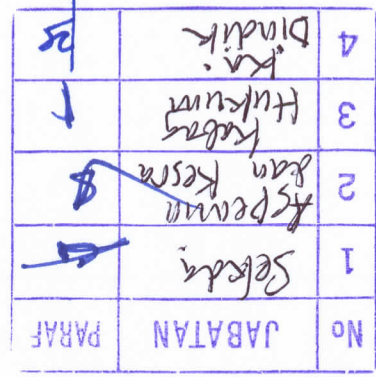 No JABATAN PARAF
1 Sekda
2 Aspemn
dan Kesra
3 Kabag
Hukum
4 Ka.
Dindik